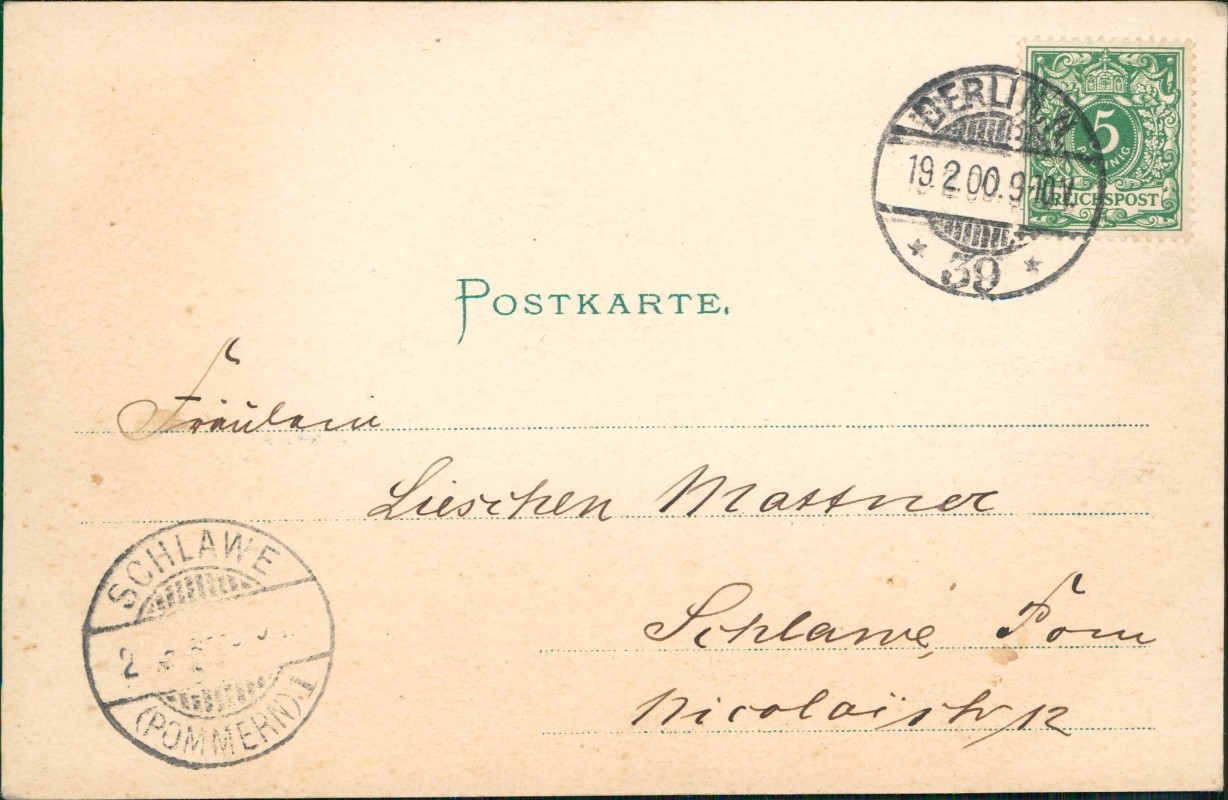 BERLIN N
5
PFENNIG
19.2.00.9-10V.
REICHSPOST
* 39 *
POSTKARTE.
Fräulein
Lieschen Mattner
SCHLAWE
Schlawe, Pom
2
(POMMERN) 1
Nicolaistr 12